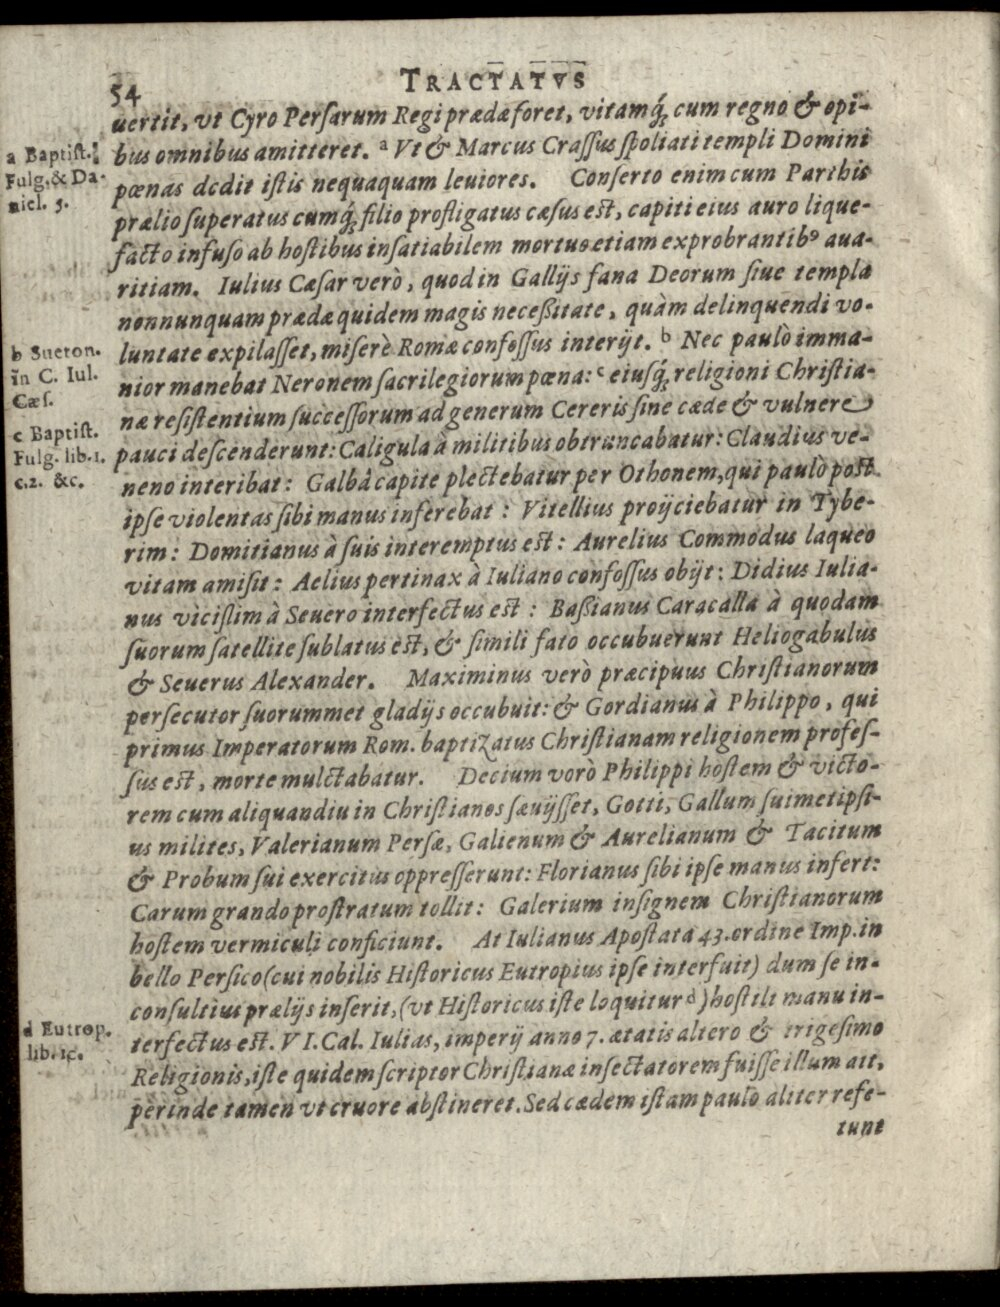 54
TRACTATVS
uertit, vt Cyro Perſarum Regi prædæ foret, vitamq́; cum regno & opi-
bus omnibus amitteret. ᵃ Vt & Marcus Craſſus ſpoliati templi Domini
pœnas dedit iſtis nequaquam leuiores. Conſerto enim cum Parthis
prælio ſuperatus cumq́; filio profligatus cæſus eſt, capiti eius auro lique-
facto infuſo ab hoſtibus inſatiabilem mortuo etiam exprobrantibꝰ aua-
ritiam. Iulius Cæſar verò, quod in Gallijs fana Deorum ſiue templa
nonnunquam prædæ quidem magis neceßitate, quàm delinquendi vo-
luntate expilaſſet, miſerè Romæ confoſſus interijt. ᵇ Nec paulò imma-
nior manebat Neronem ſacrilegiorum pœna: ᶜ eiuſq́; religioni Chriſtia-
næ reſiſtentium ſucceſſorum ad generum Cereris ſine cæde & vulnere
pauci deſcenderunt: Caligula à militibus obtruncabatur: Claudius ve-
neno interibat: Galbâ capite plectebatur per Othonem, qui paulò poſt
ipſe violentas ſibi manus inferebat: Vitellius proijciebatur in Tybe-
rim: Domitianus à ſuis interemptus eſt: Aurelius Commodus laqueo
vitam amiſit: Aelius pertinax à Iuliano confoſſus obijt: Didius Iulia-
nus viciſſim à Seuero interfectus eſt: Baßianus Caracalla à quodam
ſuorum ſatellite ſublatus eſt, & ſimili fato occubuerunt Heliogabulus
& Seuerus Alexander. Maximinus verò præcipuus Chriſtianorum
perſecutor ſuorummet gladijs occubuit: & Gordianus à Philippo, qui
primus Imperatorum Rom. baptizatus Chriſtianam religionem profeſ-
ſus eſt, morte mulctabatur. Decium vorò Philippi hoſtem & victo-
rem cum aliquandiu in Chriſtianos ſæuijſſet, Gotti, Gallum ſuimetipſi-
us milites, Valerianum Perſæ, Galienum & Aurelianum & Tacitum
& Probum ſui exercitus oppreſſerunt: Florianus ſibi ipſe manus infert:
Carum grando proſtratum tollit: Galerium inſignem Chriſtianorum
hoſtem vermiculi conficiunt. At Iulianus Apoſtata 43. ordine Imp. in
bello Perſico (cui nobilis Hiſtoricus Eutropius ipſe interfuit) dum ſe in-
conſultius prælijs inſerit, (vt Hiſtoricus iſte loquitur ᵈ) hoſtili manu in-
terfectus eſt. VI. Cal. Iulias, imperij anno 7. ætatis altero & trigeſimo
Religionis, iſte quidem ſcriptor Chriſtianæ inſectatorem fuiſſe illum ait,
perinde tamen vt cruore abſtineret. Sed cædem iſtam paulo aliter refe-
runt
a Baptiſt.
Fulg. & Da-
niel. 5.
b Sueton.
in C. Iul.
Cæſ.
c Baptiſt.
Fulg. lib. 1.
c. 2. &c.
d Eutrop.
lib. 10.